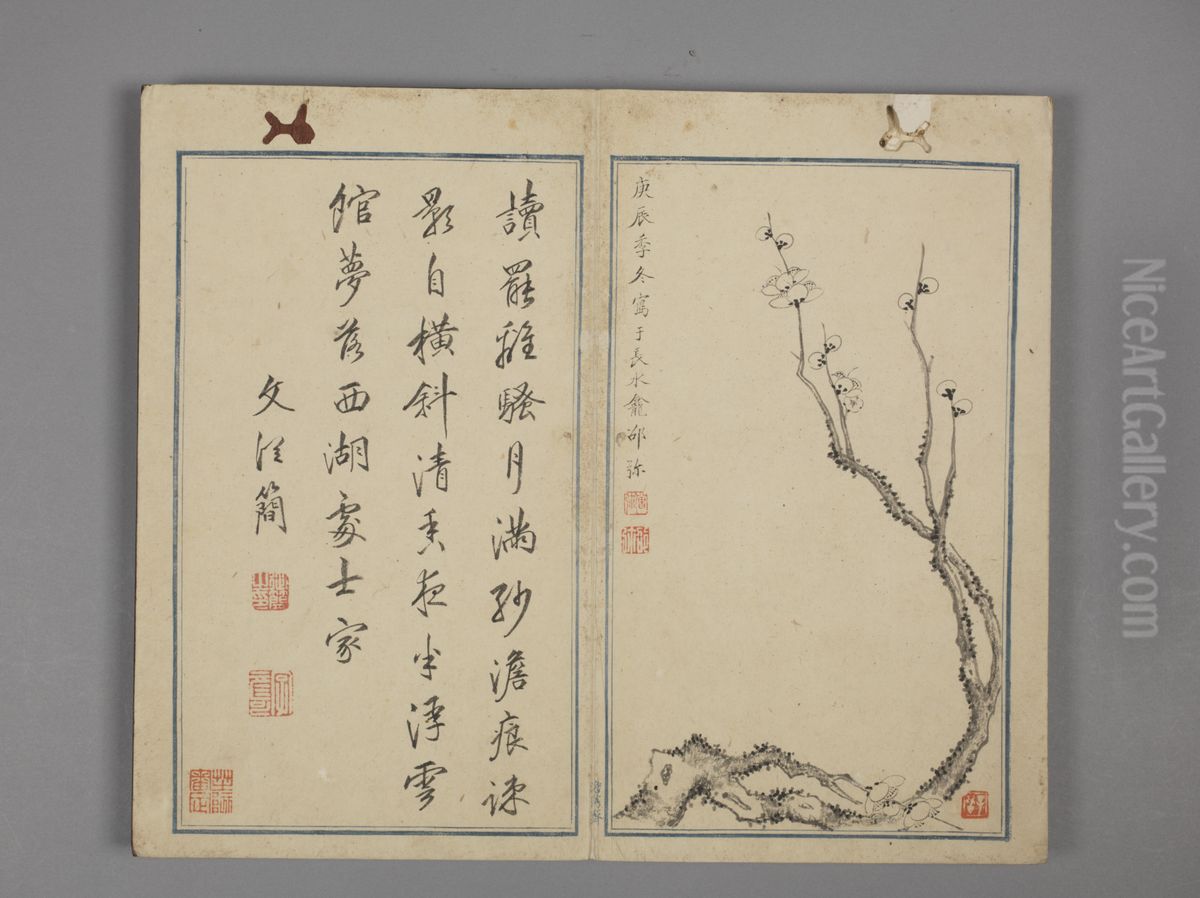 庚辰季冬寫于長水龕邵弥
讀罷離騷月滿紗澹痕疎
影自橫斜清香夜半浮雲
館夢落西湖處士家
文從簡
NiceArtGallery.com